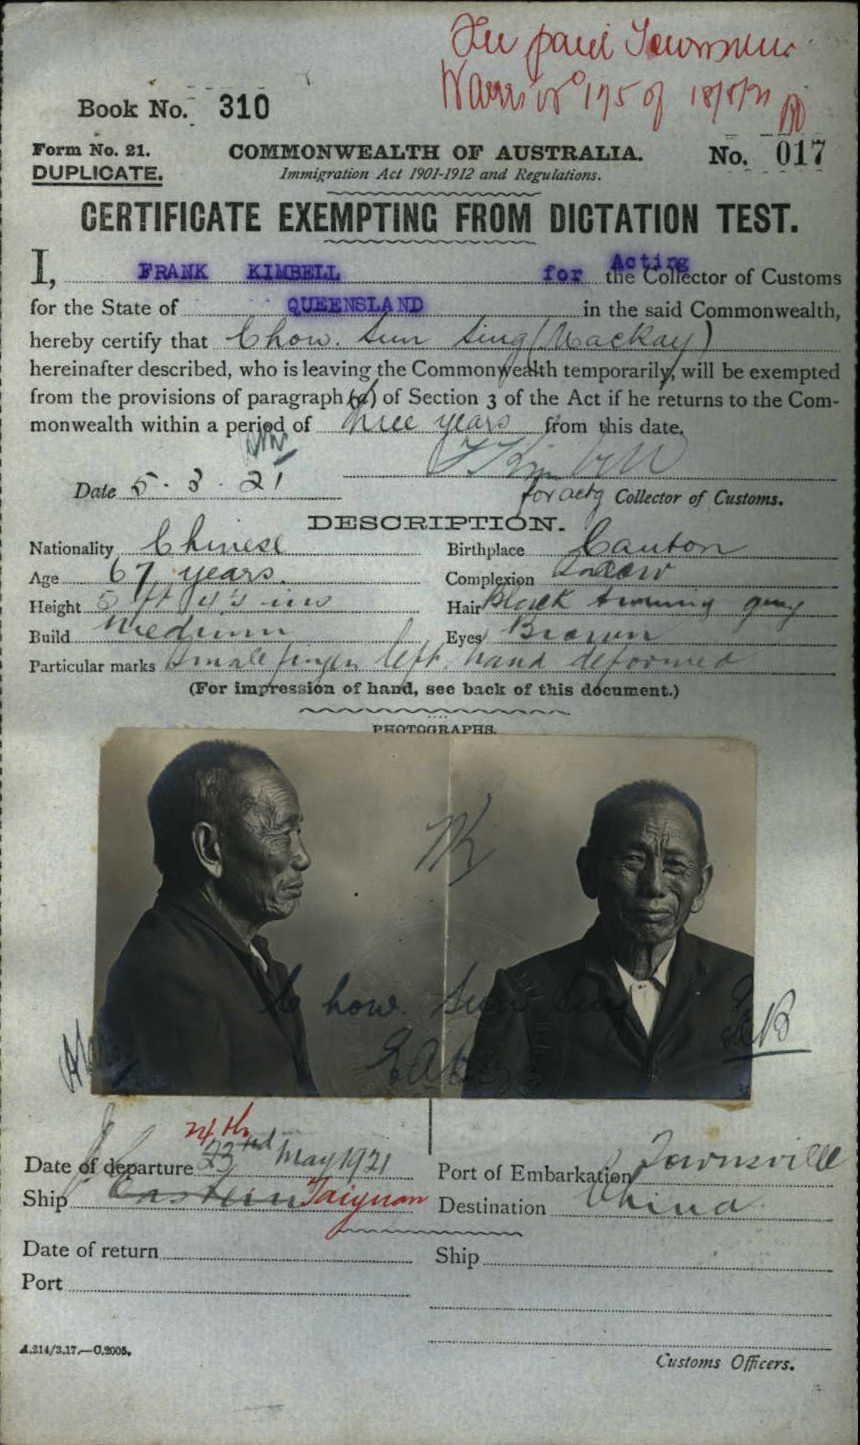 Fee paid Townsville
175 of 18/5/21
Book No. 310
Form No. 21.
DUPLICATE.
COMMONWEALTH OF AUSTRALIA.
Immigration Act 1901-1912 and Regulations.
No. 017
CERTIFICATE EXEMPTING FROM DICTATION TEST.
I, FRANK KIMBELL for Acting the Collector of Customs
for the State of QUEENSLAND in the said Commonwealth,
hereby certify that Chow. Sun Sing (Mackay)
hereinafter described, who is leaving the Commonwealth temporarily, will be exempted
from the provisions of paragraph (a) of Section 3 of the Act if he returns to the Com-
monwealth within a period of three years from this date.
F Kimbell
Date 5. 3. 21
for actg Collector of Customs.
DESCRIPTION.
Nationality Chinese
Birthplace Canton
Age 67 years.
Complexion
Height 5 ft 4½ ins
Hair Black turning grey
Build Medium
Eyes Brown
Particular marks Small finger left hand deformed
(For impression of hand, see back of this document.)
PHOTOGRAPHS.
Chow. Sun Sing
Date of departure 23rd 24th May 1921
Port of Embarkation Townsville
Ship Eastern Taiyuan
Destination China
Date of return
Ship
Port
A.214/3.17.—C.2005.
Customs Officers.